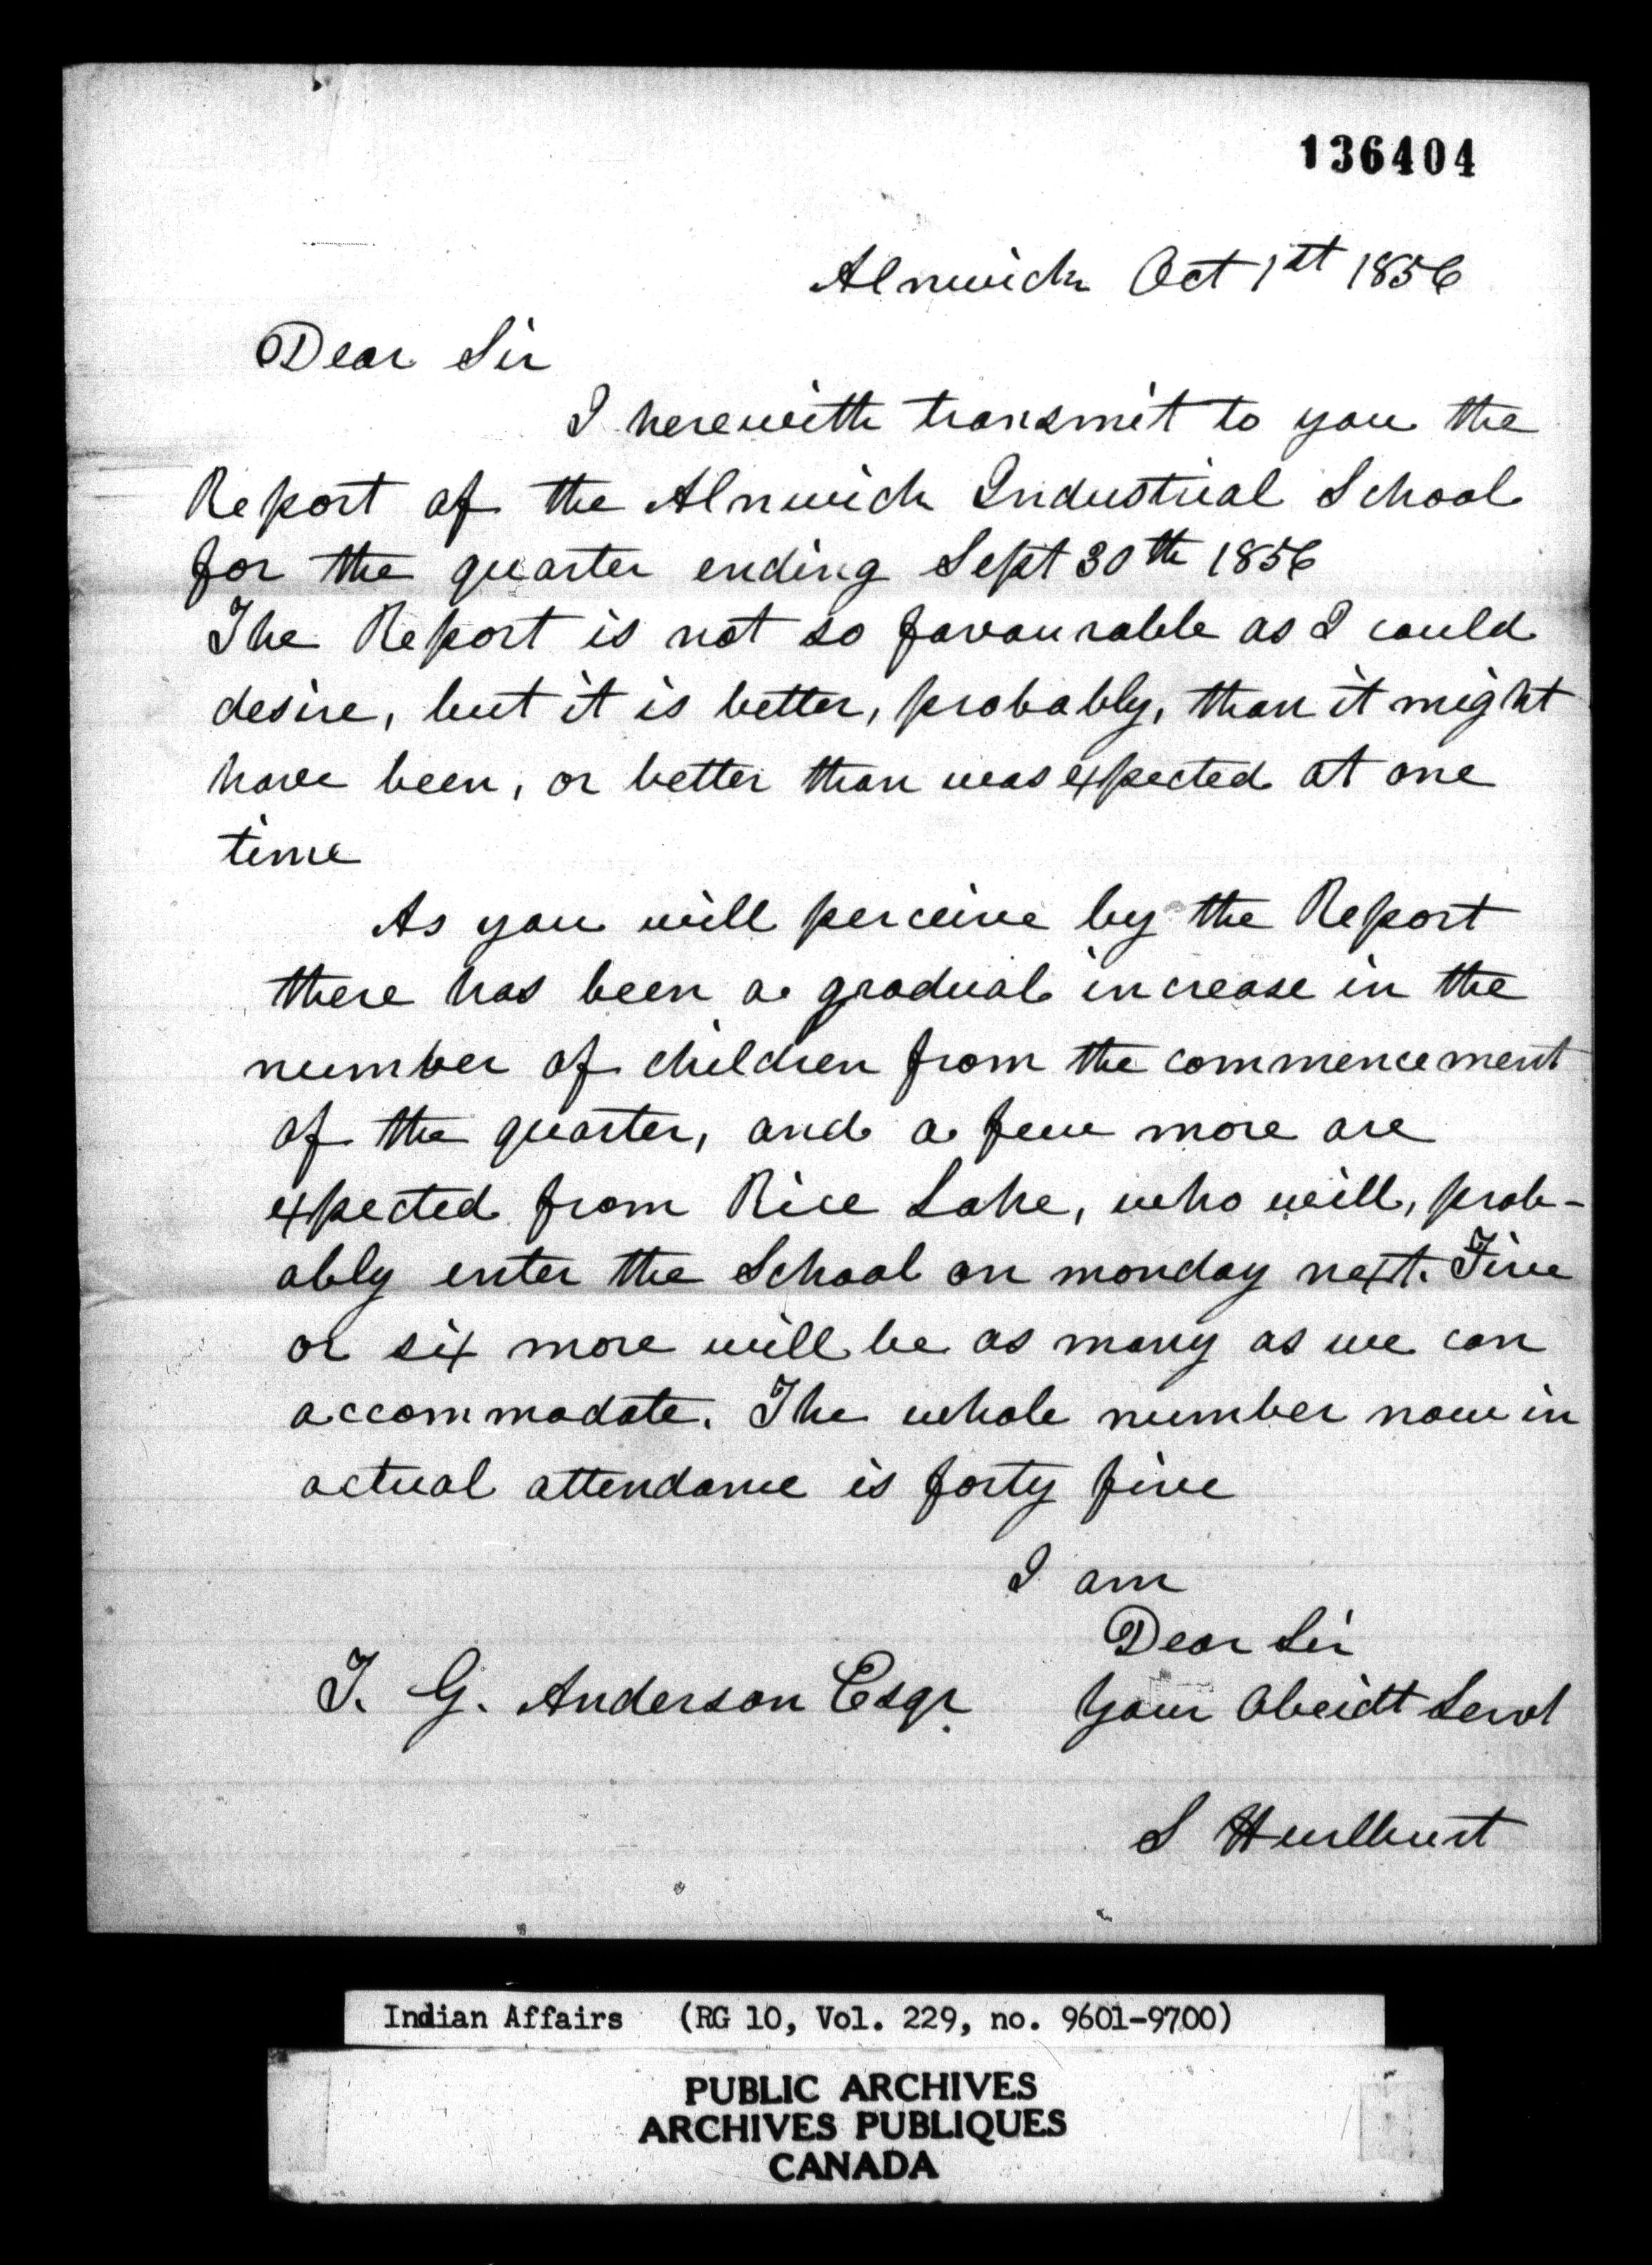 136404
Alnwick Oct 1st 1856
Dear Sir
I herewith transmit to you the
Report of the Alnwick Industrial School
for the quarter ending Sept 30th 1856
The Report is not so favourable as I could
desire, but it is better, probably, than it might
have been, or better than was expected at one
time
As you will perceive by the Report
there has been a gradual increase in the
number of children from the commencement
of the quarter, and a few more are
expected from Rice Lake, who will, prob-
ably enter the School on monday next. Five
or six more will be as many as we can
accommodate. The whole number now in
actual attendance is forty five
I am
Dear Sir
T. G. Anderson Esqr. Your Obeidt Servt
S Hurlburt
Indian Affairs (RG 10, Vol. 229, no. 9601-9700)
PUBLIC ARCHIVES
ARCHIVES PUBLIQUES
CANADA